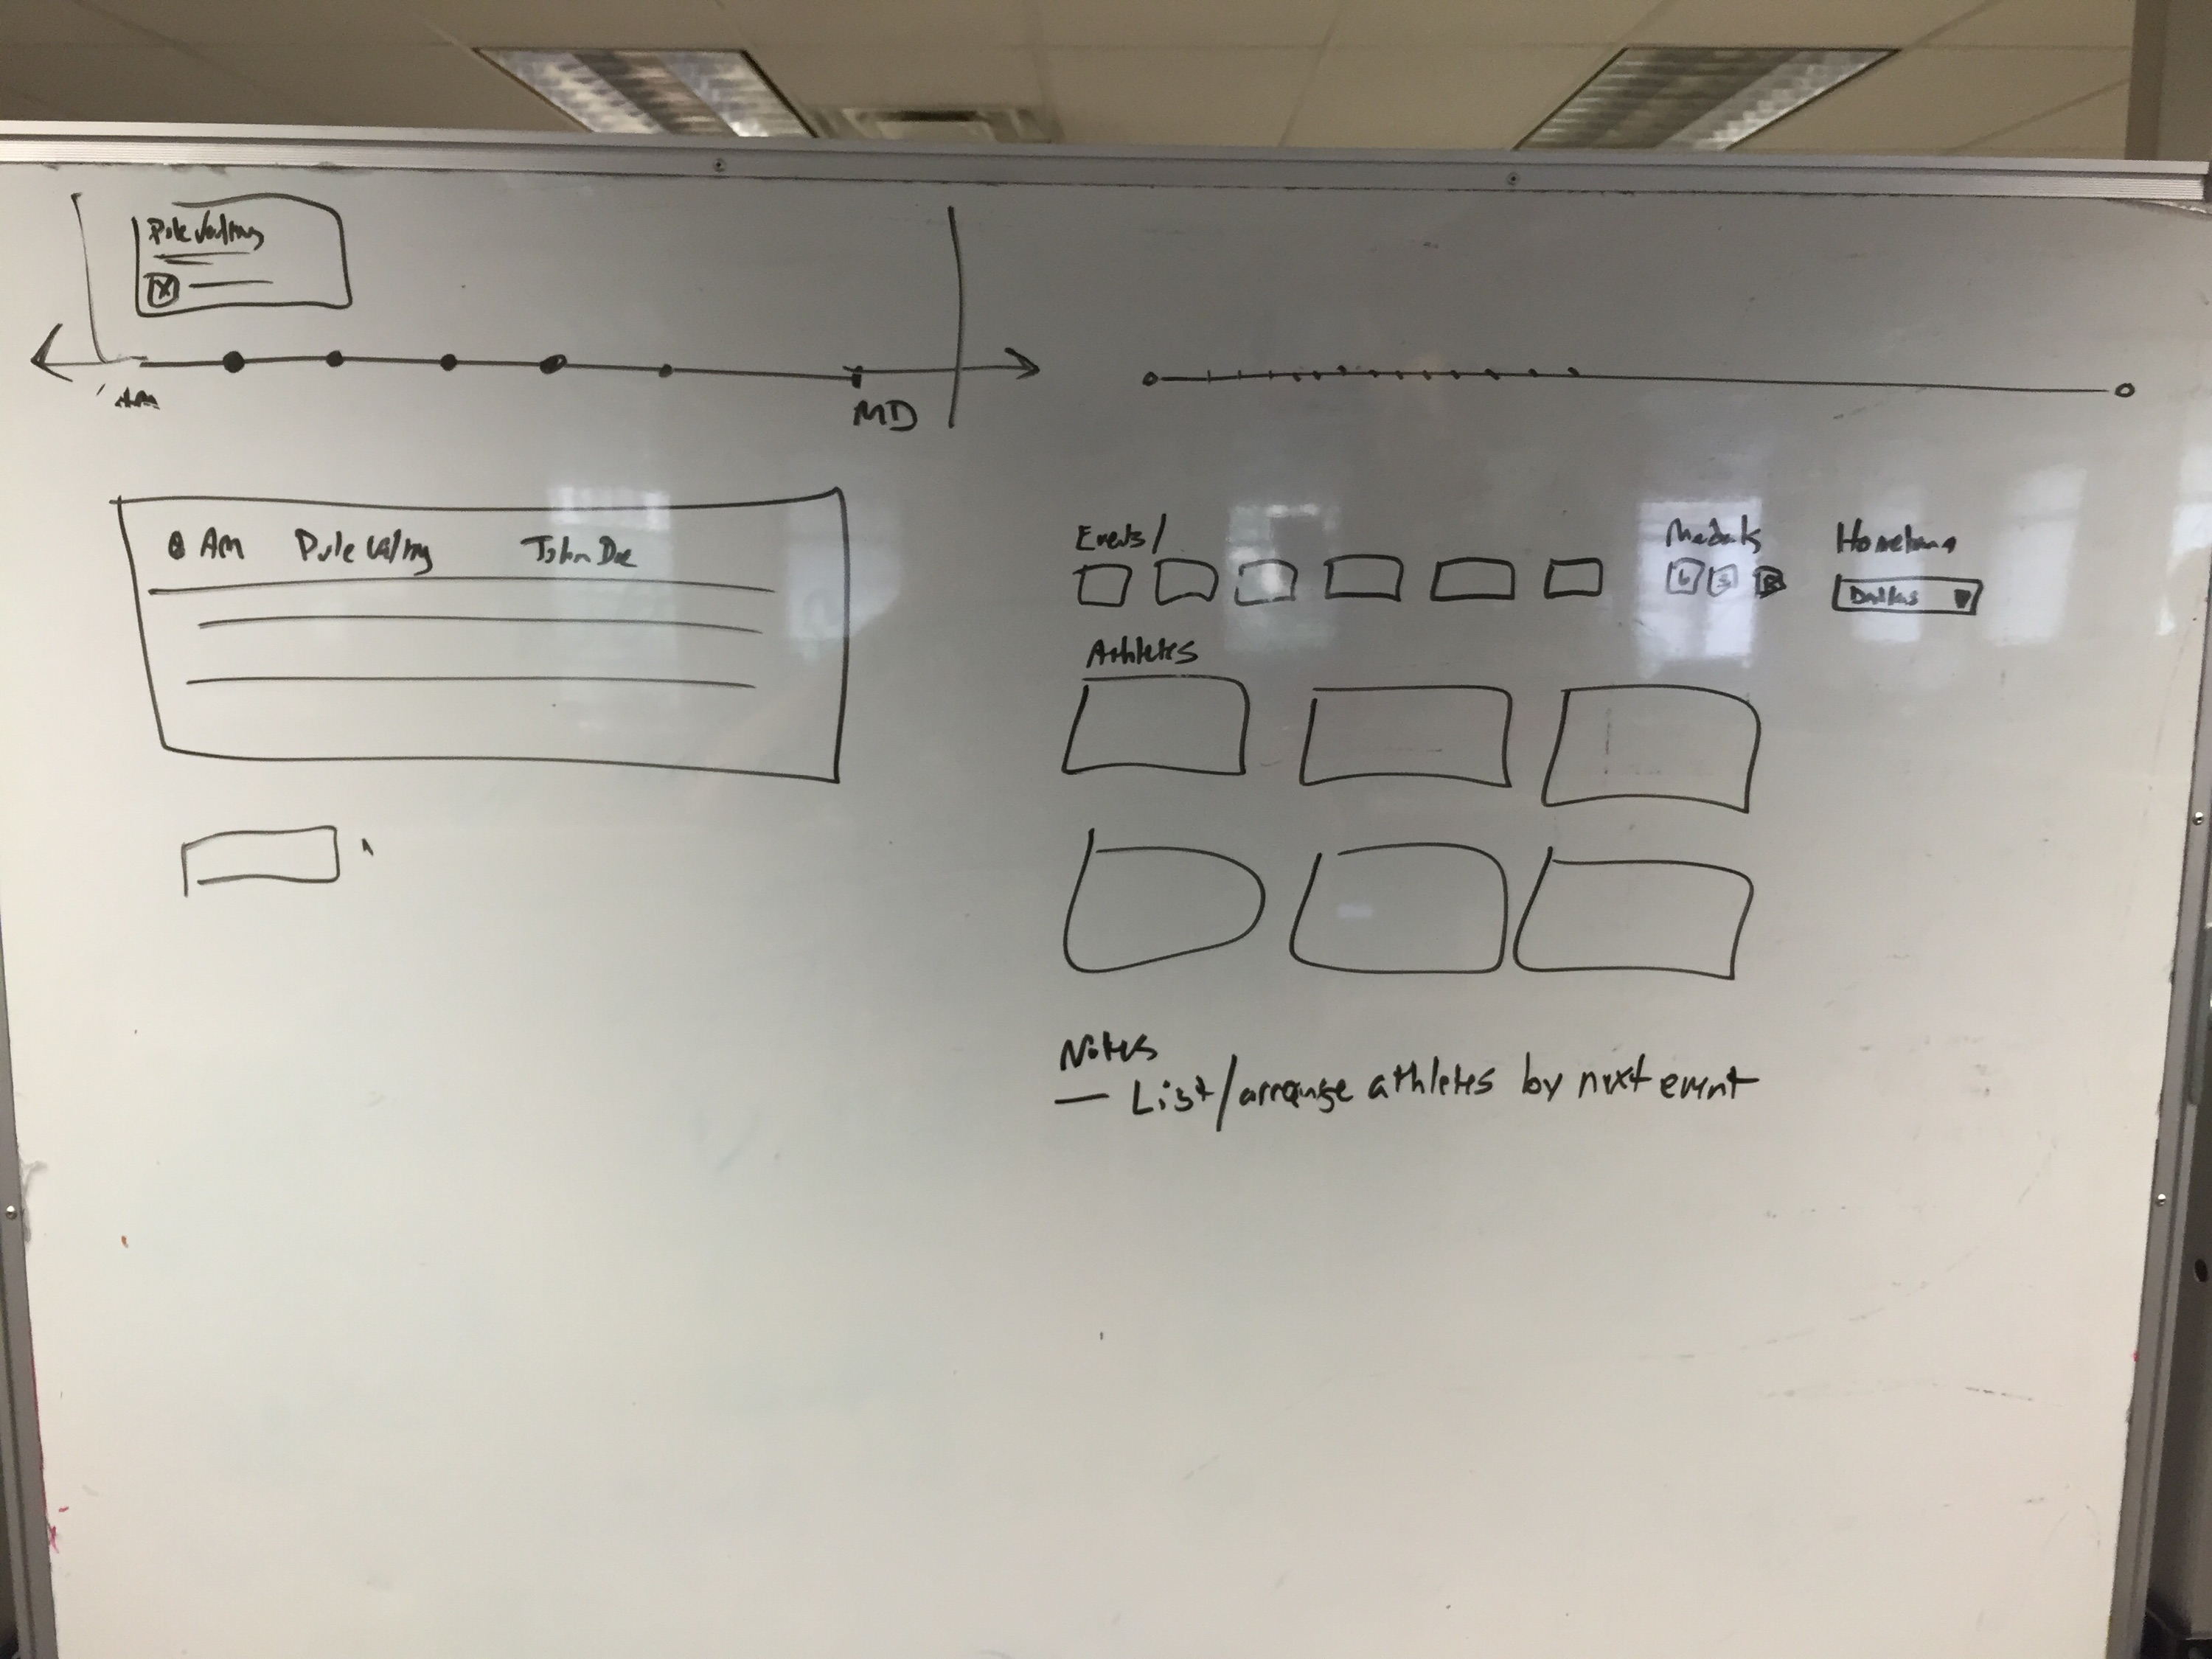 Pole Vaulting
AM
MD
8 AM Pole Vaulting John Doe
Events/
Medals
G S B
Hometown
Dallas
Athletes
Notes
— List/arrange athletes by next event